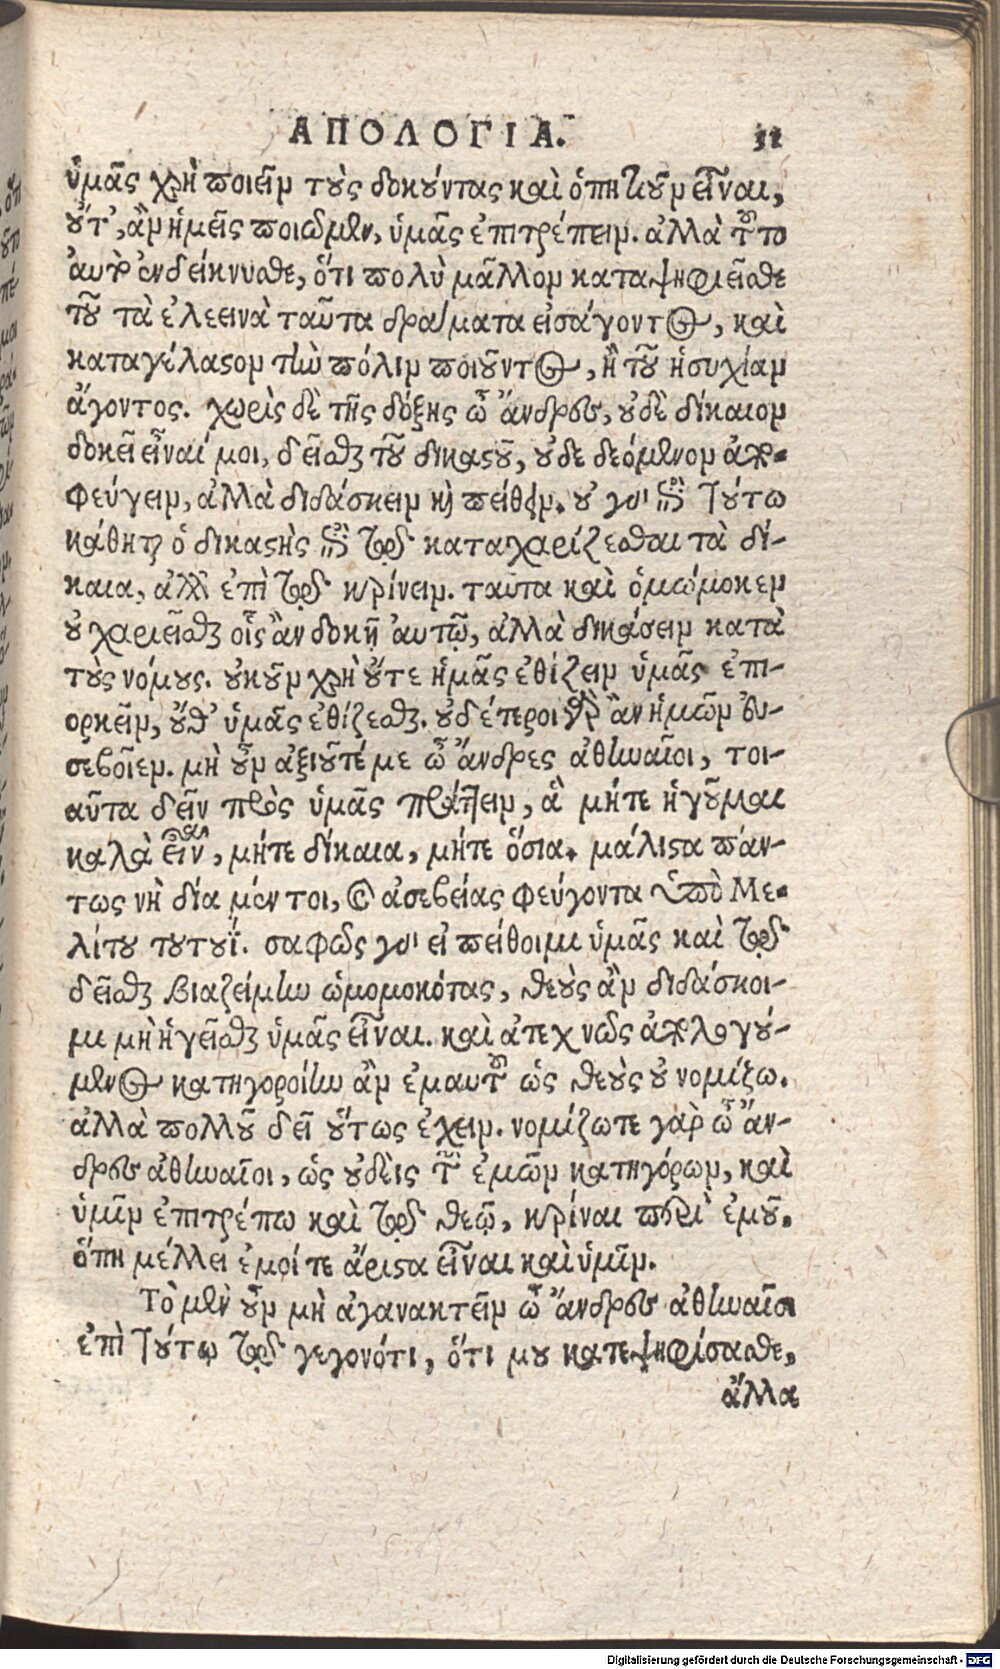 ΑΠΟΛΟΓΙΑ. 31
ὑμᾶς χρὴ ποιεῖν τοὺς δοκοῦντας καὶ ὁπητιοῦν εἶναι,
οὔτ', ἂν ἡμεῖς ποιῶμεν, ὑμᾶς ἐπιτρέπειν. ἀλλὰ τοῦτο
αὐτὸ ἐνδείκνυσθε, ὅτι πολὺ μᾶλλον καταψηφιεῖσθε
τοῦ τὰ ἐλεεινὰ ταῦτα δράματα εἰσάγοντος, καὶ
καταγέλαστον τὴν πόλιν ποιοῦντος, ἢ τοῦ ἡσυχίαν
ἄγοντος. χωρὶς δὲ τῆς δόξης ὦ ἄνδρες, οὐδὲ δίκαιον
δοκεῖ εἶναί μοι, δεῖσθαι τοῦ δικαστοῦ, οὐδε δεόμενον ἀπο-
φεύγειν, ἀλλὰ διδάσκειν καὶ πείθειν. οὐ γὰρ ἐπὶ τούτω
κάθηται ὁ δικαστὴς ἐπὶ τῷ καταχαρίζεσθαι τὰ δί-
καια, ἀλλ' ἐπὶ τῷ κρίνειν. ταῦτα καὶ ὀμώμοκεν
οὐ χαριεῖσθαι οἷς ἂν δοκῇ αὐτῷ, ἀλλὰ δικάσειν κατὰ
τοὺς νόμους. οὐκοῦν χρὴ οὔτε ἡμᾶς ἐθίζειν ὑμᾶς ἐπι-
ορκεῖν, οὔθ' ὑμᾶς ἐθίζεσθαι. οὐδέτεροι γὰρ ἂν ἡμῶν εὐ-
σεβοῖεν. μὴ οὖν ἀξιοῦτέ με ὦ ἄνδρες ἀθηναῖοι, τοι-
αῦτα δεῖν πρὸς ὑμᾶς πράττειν, ἃ μήτε ἡγοῦμαι
καλὰ εἶναι, μήτε δίκαια, μήτε ὅσια. μάλιστα πάν-
τως νὴ δία μέντοι, καὶ ἀσεβείας φεύγοντα ὑπὸ Με-
λίτου τουτουΐ. σαφῶς γὰρ εἰ πείθοιμι ὑμᾶς καὶ τῷ
δεῖσθαι βιαζείμην ὠμομοκότας, θεοὺς ἂν διδάσκοι-
μι μὴ ἡγεῖσθαι ὑμᾶς εἶναι. καὶ ἀτεχνῶς ἀπολογού-
μενος κατηγοροίην ἂν ἐμαυτοῦ ὡς θεοὺς οὐ νομίζω.
ἀλλὰ πολλοῦ δεῖ οὕτως ἔχειν. νομίζωτε γὰρ ὦ ἄν-
δρες ἀθηναῖοι, ὡς οὐδεὶς τῶν ἐμῶν κατηγόρων, καὶ
ὑμῖν ἐπιτρέπω καὶ τῷ θεῷ, κρίναι περὶ ἐμοῦ.
ὅπη μέλλει ἐμοί τε ἄριστα εἶναι καὶ ὑμῖν.
Τὸ μὲν οὖν μὴ ἀγανακτεῖν ὦ ἄνδρες ἀθηναῖοι
ἐπὶ τούτῳ τῷ γεγονότι, ὅτι μου κατεψηφίσασθε,
ἄλλα
Digitalisierung gefördert durch die Deutsche Forschungsgemeinschaft - DFG